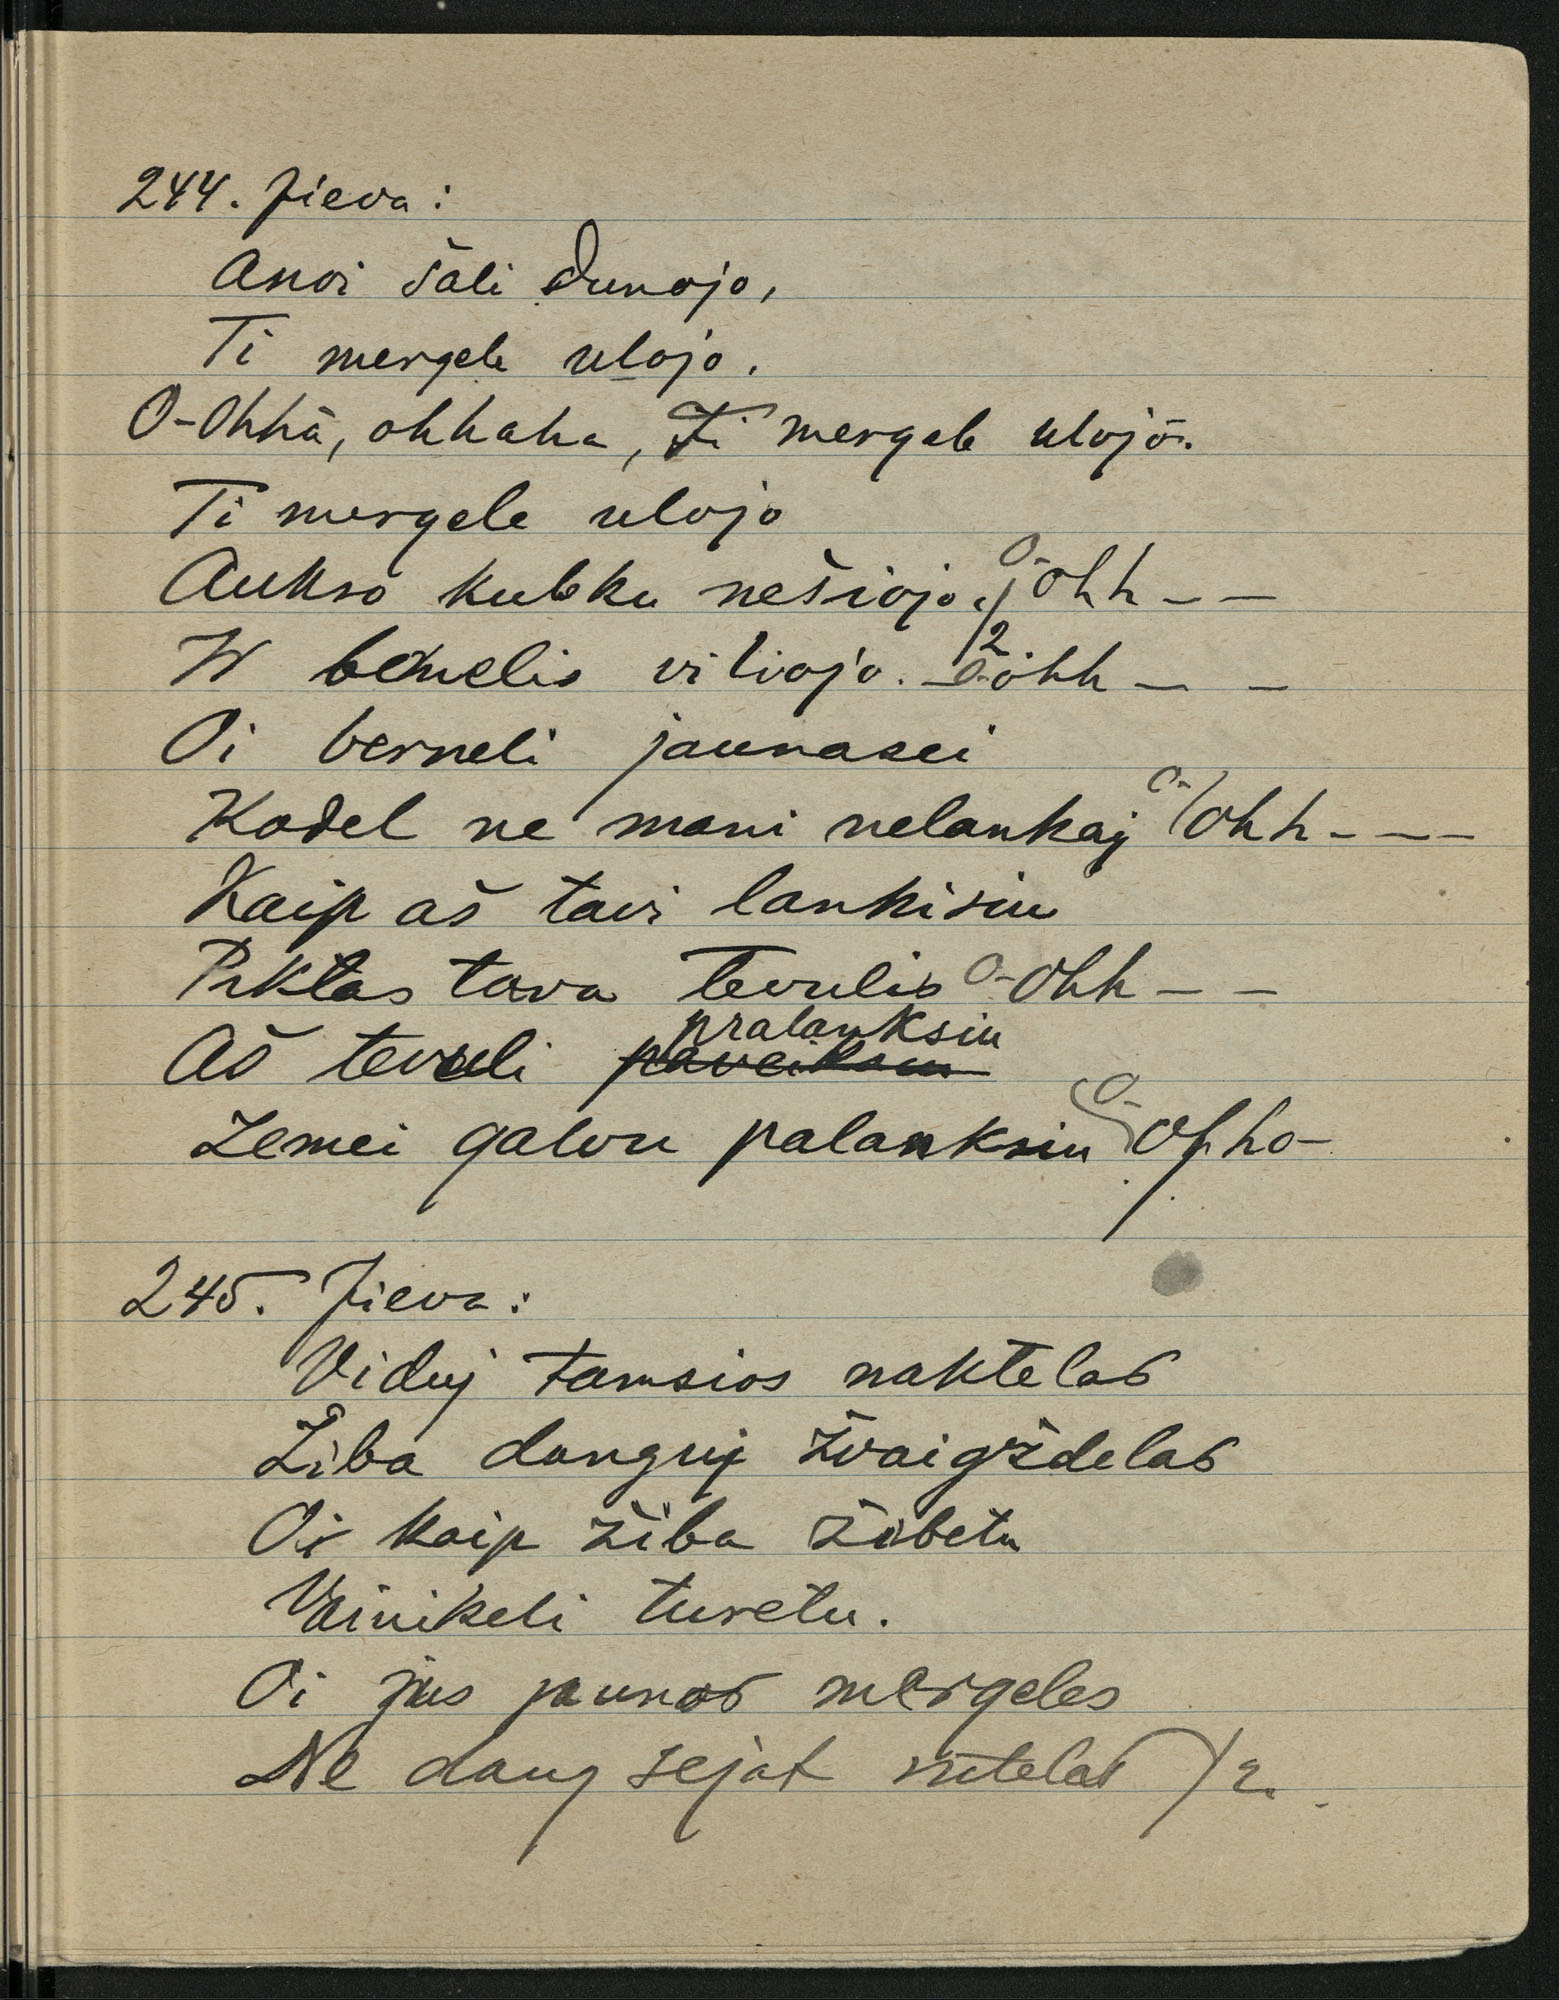 244. Jieva:
Anoi šali Dunojo,
Ti mergele ulojo.
O-Ohha, ohhaha, Ti mergele ulojo.
Ti mergele ulojo
Aukso kubku nešiojo, O-ohh – –
Ir bernelis viliojo. 2 O-ohh – –
Oi berneli jaunasei
Kodel ne mani nelankaj O-ohh – – –
Kaip aš tavi lankisiu
Piktas tava tevulis O-Ohh – –
pralanksiu
Aš tevuli paveiksiu
Zemei galvu palanksiu O-Ohho –
245. Jieva:
Viduj tamsios naktelas
Žiba danguj žvaigždelas
Oi kaip žiba žibetu
Vainikeli turetu.
Oi jus jaunas mergeles
Ne daug sejat rutelas )2.